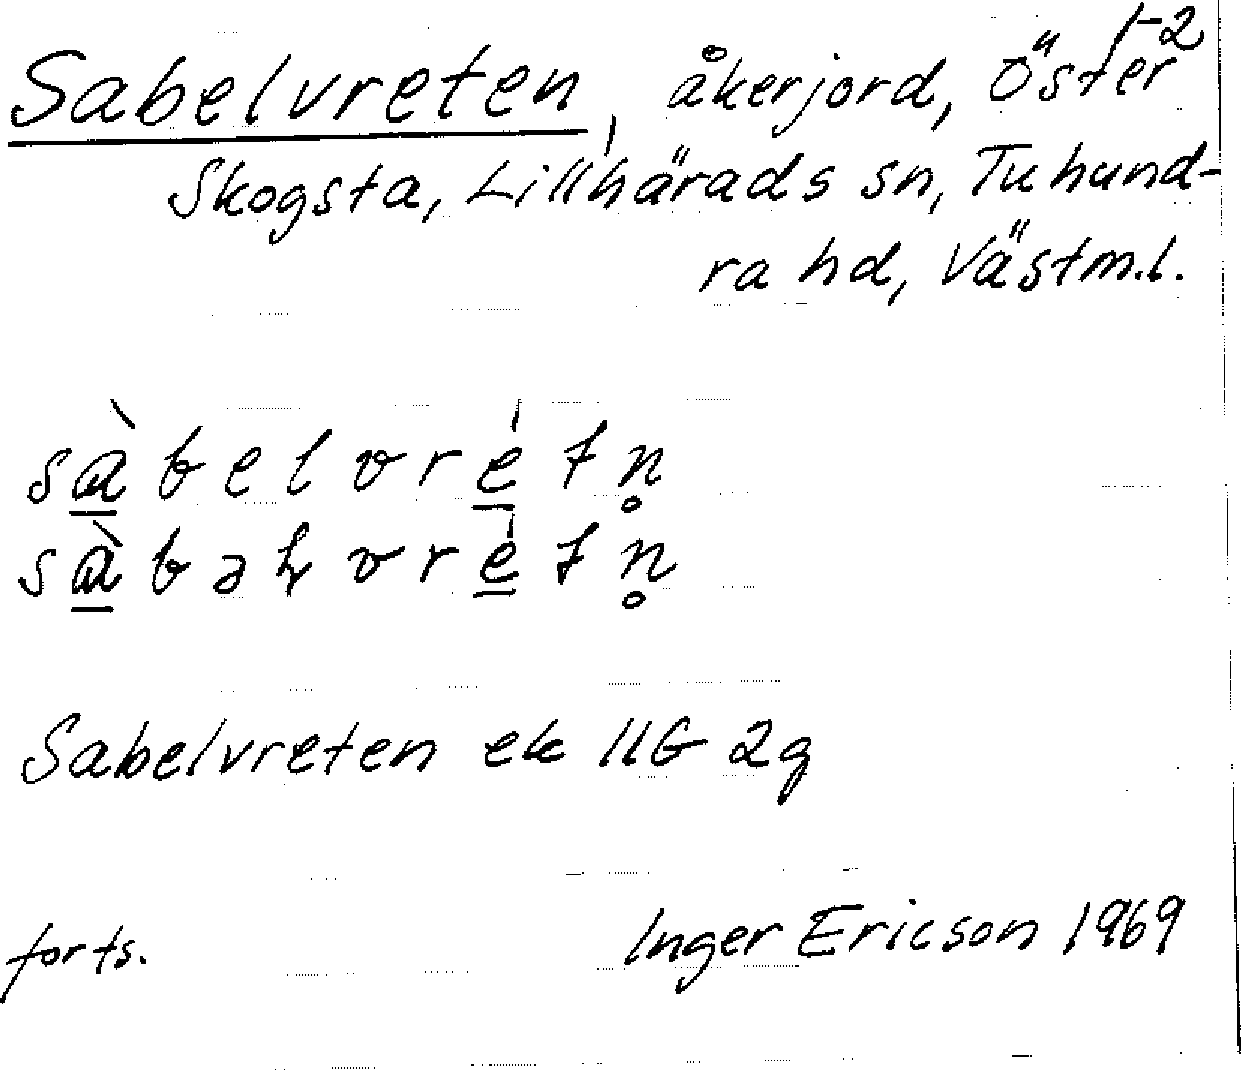 1-2
Sabelvreten, åkerjord, Öster
Skogsta, Lillhärads sn, Tuhund-
ra hd, Västm.l.
sàbelvrétn̥
sàbəɽvrétn̥
Sabelvreten ek 11G 2g
forts. Inger Ericson 1969